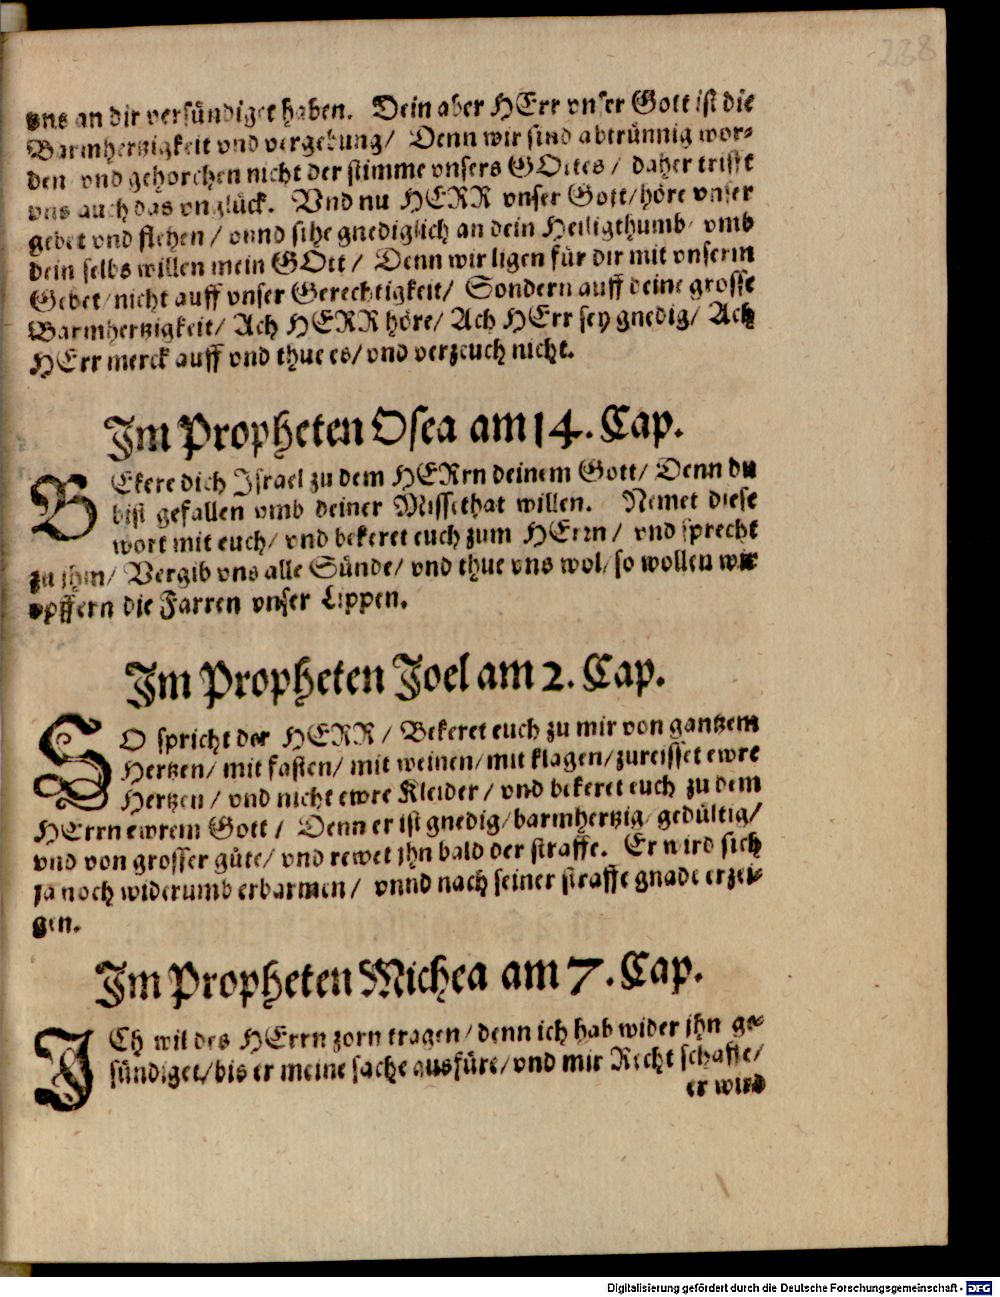 238
vns an dir versündiget haben. Dein aber HErr vnser Gott ist die
Barmhertzigkeit vnd vergebung/ Denn wir sind abtrünnig wor-
den vnd gehorchen nicht der stimme vnsers GOttes/ daher trifft
vns auch das vnglück. Vnd nu HERR vnser Gott/ höre vnser
gebet vnd flehen/ vnnd sihe gnediglich an dein Heiligthumb/ vmb
dein selbs willen mein GOtt/ Denn wir ligen für dir mit vnserm
Gebet/ nicht auff vnser Gerechtigkeit/ Sondern auff deine grosse
Barmhertzigkeit/ Ach HERR höre/ Ach HErr sey gnedig/ Ach
HErr merck auff vnd thue es/ vnd verzeuch nicht.
Im Propheten Osea am 14. Cap.
BEkere dich Israel zu dem HERrn deinem Gott/ Denn du
bist gefallen vmb deiner Missethat willen. Nemet diese
wort mit euch/ vnd bekeret euch zum HErrn/ vnd sprecht
zu jhm/ Vergib vns alle Sünde/ vnd thue vns wol/ so wollen wir
opffern die Farren vnser Lippen.
Im Propheten Joel am 2. Cap.
SO spricht der HERR/ Bekeret euch zu mir von gantzem
Hertzen/ mit fasten/ mit weinen/ mit klagen/ zureisset ewre
Hertzen/ vnd nicht ewre Kleider/ vnd bekeret euch zu dem
HErrn ewrem Gott/ Denn er ist gnedig/ barmhertzig/ gedültig/
vnd von grosser güte/ vnd rewet jhn bald der straffe. Er wird sich
ja noch widerumb erbarmen/ vnnd nach seiner straffe gnade erzei-
gen.
Im Propheten Michea am 7. Cap.
ICh wil des HErrn zorn tragen/ denn ich hab wider jhn ge-
sündiget/ bis er meine sache ausfüre/ vnd mir Recht schaffe/
er wird
Digitalisierung gefördert durch die Deutsche Forschungsgemeinschaft - DFG